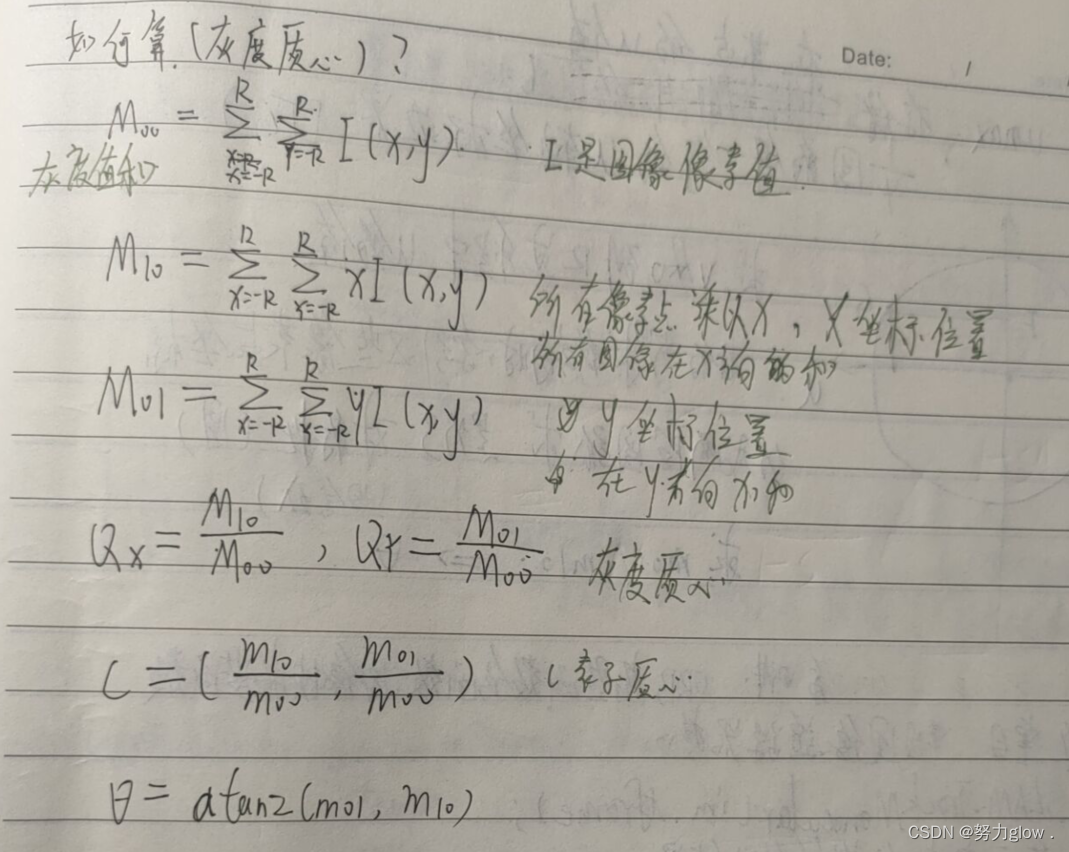 如何算(灰度质心)? Date: /
M00 = R∑x=-R R∑Y=-R I(x,y). I是图像像素值.
灰度值和
M10 = R∑x=-R R∑x=-R xI(x,y) 所有像素点乘以X,X坐标位置
所有图像在X方向的和
M01 = R∑x=-R R∑x=-R yI(x,y) y坐标位置
在y方向的和
Qx = M10/M00 , QY = M01/M00 灰度质心
C = (m10/m00, m01/m00) C表示质心
θ = atan2(m01, m10)
CSDN @努力glow .